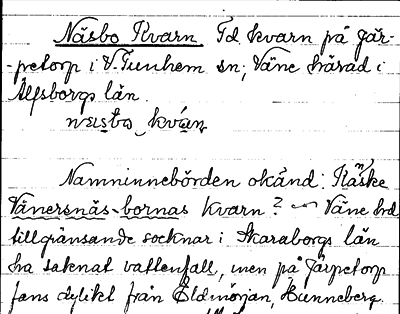 Näsbo Kvarn. F.d. kvarn på Jär-
-petorp i V. Tunhem sn; Väne härad i
Älfsborgs län.
kván
Namninnebörden okänd. Kanske
Vänersnäs-bornas kvarn? Väne hd
tillgränsande socknar i Skaraborgs län
ha saknat vattenfall, men på Järpetorp
fans dylikt från Eldmörjan, Hunneberg.